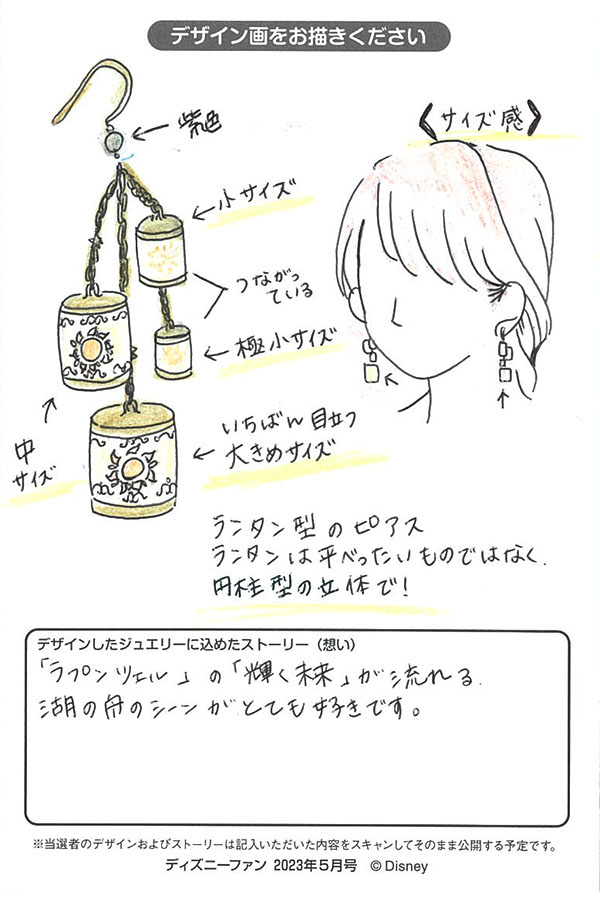 デザイン画をお描きください
紫色
〈サイズ感〉
小サイズ
つながっ
ている
極小サイズ
中
サイズ
いちばん目立つ
大きめサイズ
ランタン型のピアス
ランタンは平べったいものではなく、
円柱型の立体で!
デザインしたジュエリーに込めたストーリー（想い）
「ラプンツェル」の「輝く未来」が流れる
湖の舟のシーンがとても好きです。
※当選者のデザインおよびストーリーは記入いただいた内容をスキャンしてそのまま公開する予定です。
ディズニーファン 2023年5月号 ©Disney